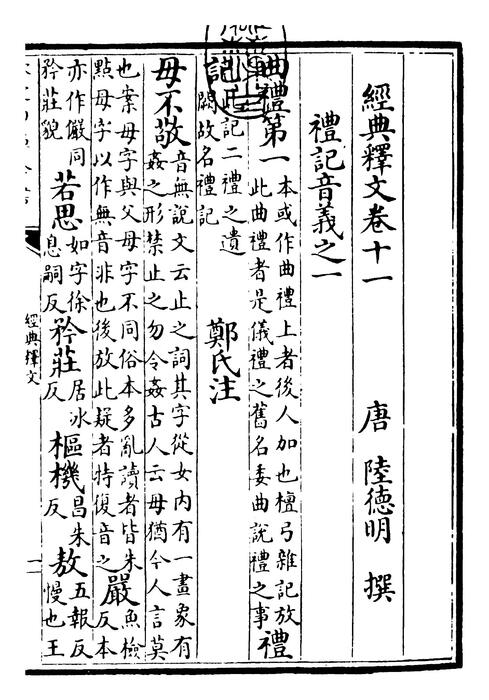 經典釋文卷十一
唐 陸德明 撰
禮記音義之一
曲禮第一本或作曲禮上者後人加也檀弓雜記放
此曲禮者是儀禮之舊名委曲說禮之事禮
記此記二禮之遺
闕故名禮記
鄭氏注
毋不敬音無說文云止之詞其字從女内有一畫象有
姦之形禁止之勿令姦古人云毋猶今人言莫
也案毋字與父母字不同俗本多亂讀者皆朱
點母字以作無音非也後放此疑者特復音之嚴魚檢
反本
亦作儼同
矜莊貌
若思如字徐
息嗣反
矜莊居冰
反
樞機昌朱
反
敖五報反
慢也王
經典釋文
一